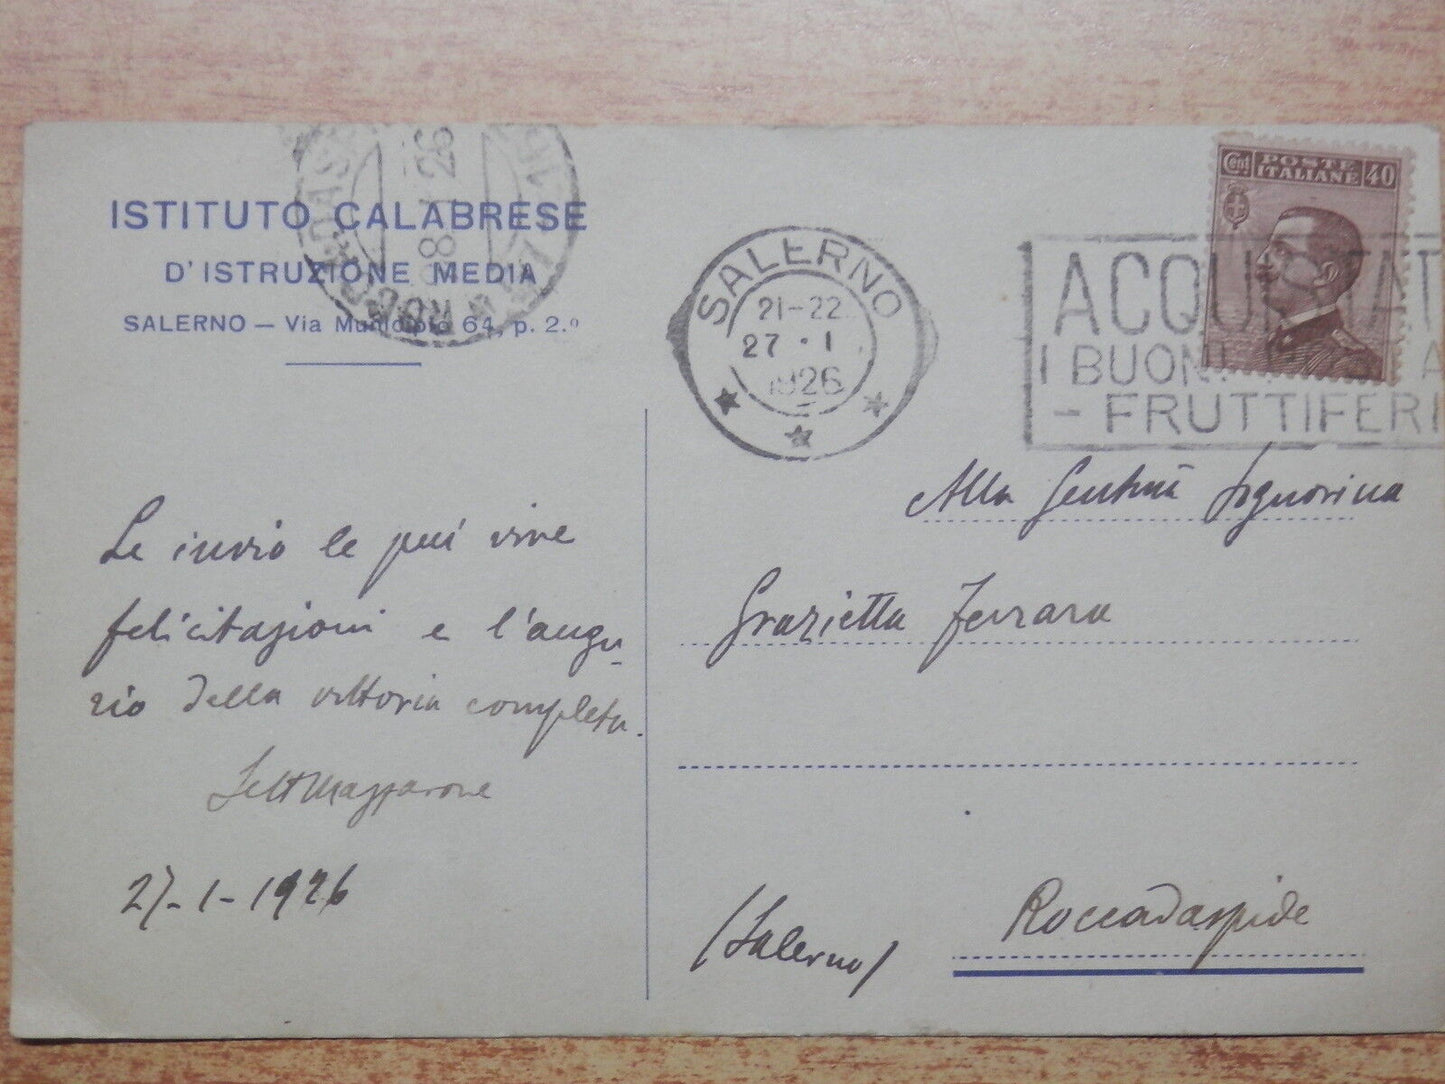 ISTITUTO CALABRESE
D'ISTRUZIONE MEDIA
SALERNO — Via Municipio 64, p. 2.º
26
SALERNO
21-22
27 · 1
1926
Cent POSTE ITALIANE 40
ACQUISTAT
I BUONI
- FRUTTIFERI
Le invio le più vive
felicitazioni e l'augu-
rio della vittoria completa.
27-1-1926
Alla Signorina
Grazietta Ferrara
Roccadaspide
(Salerno)